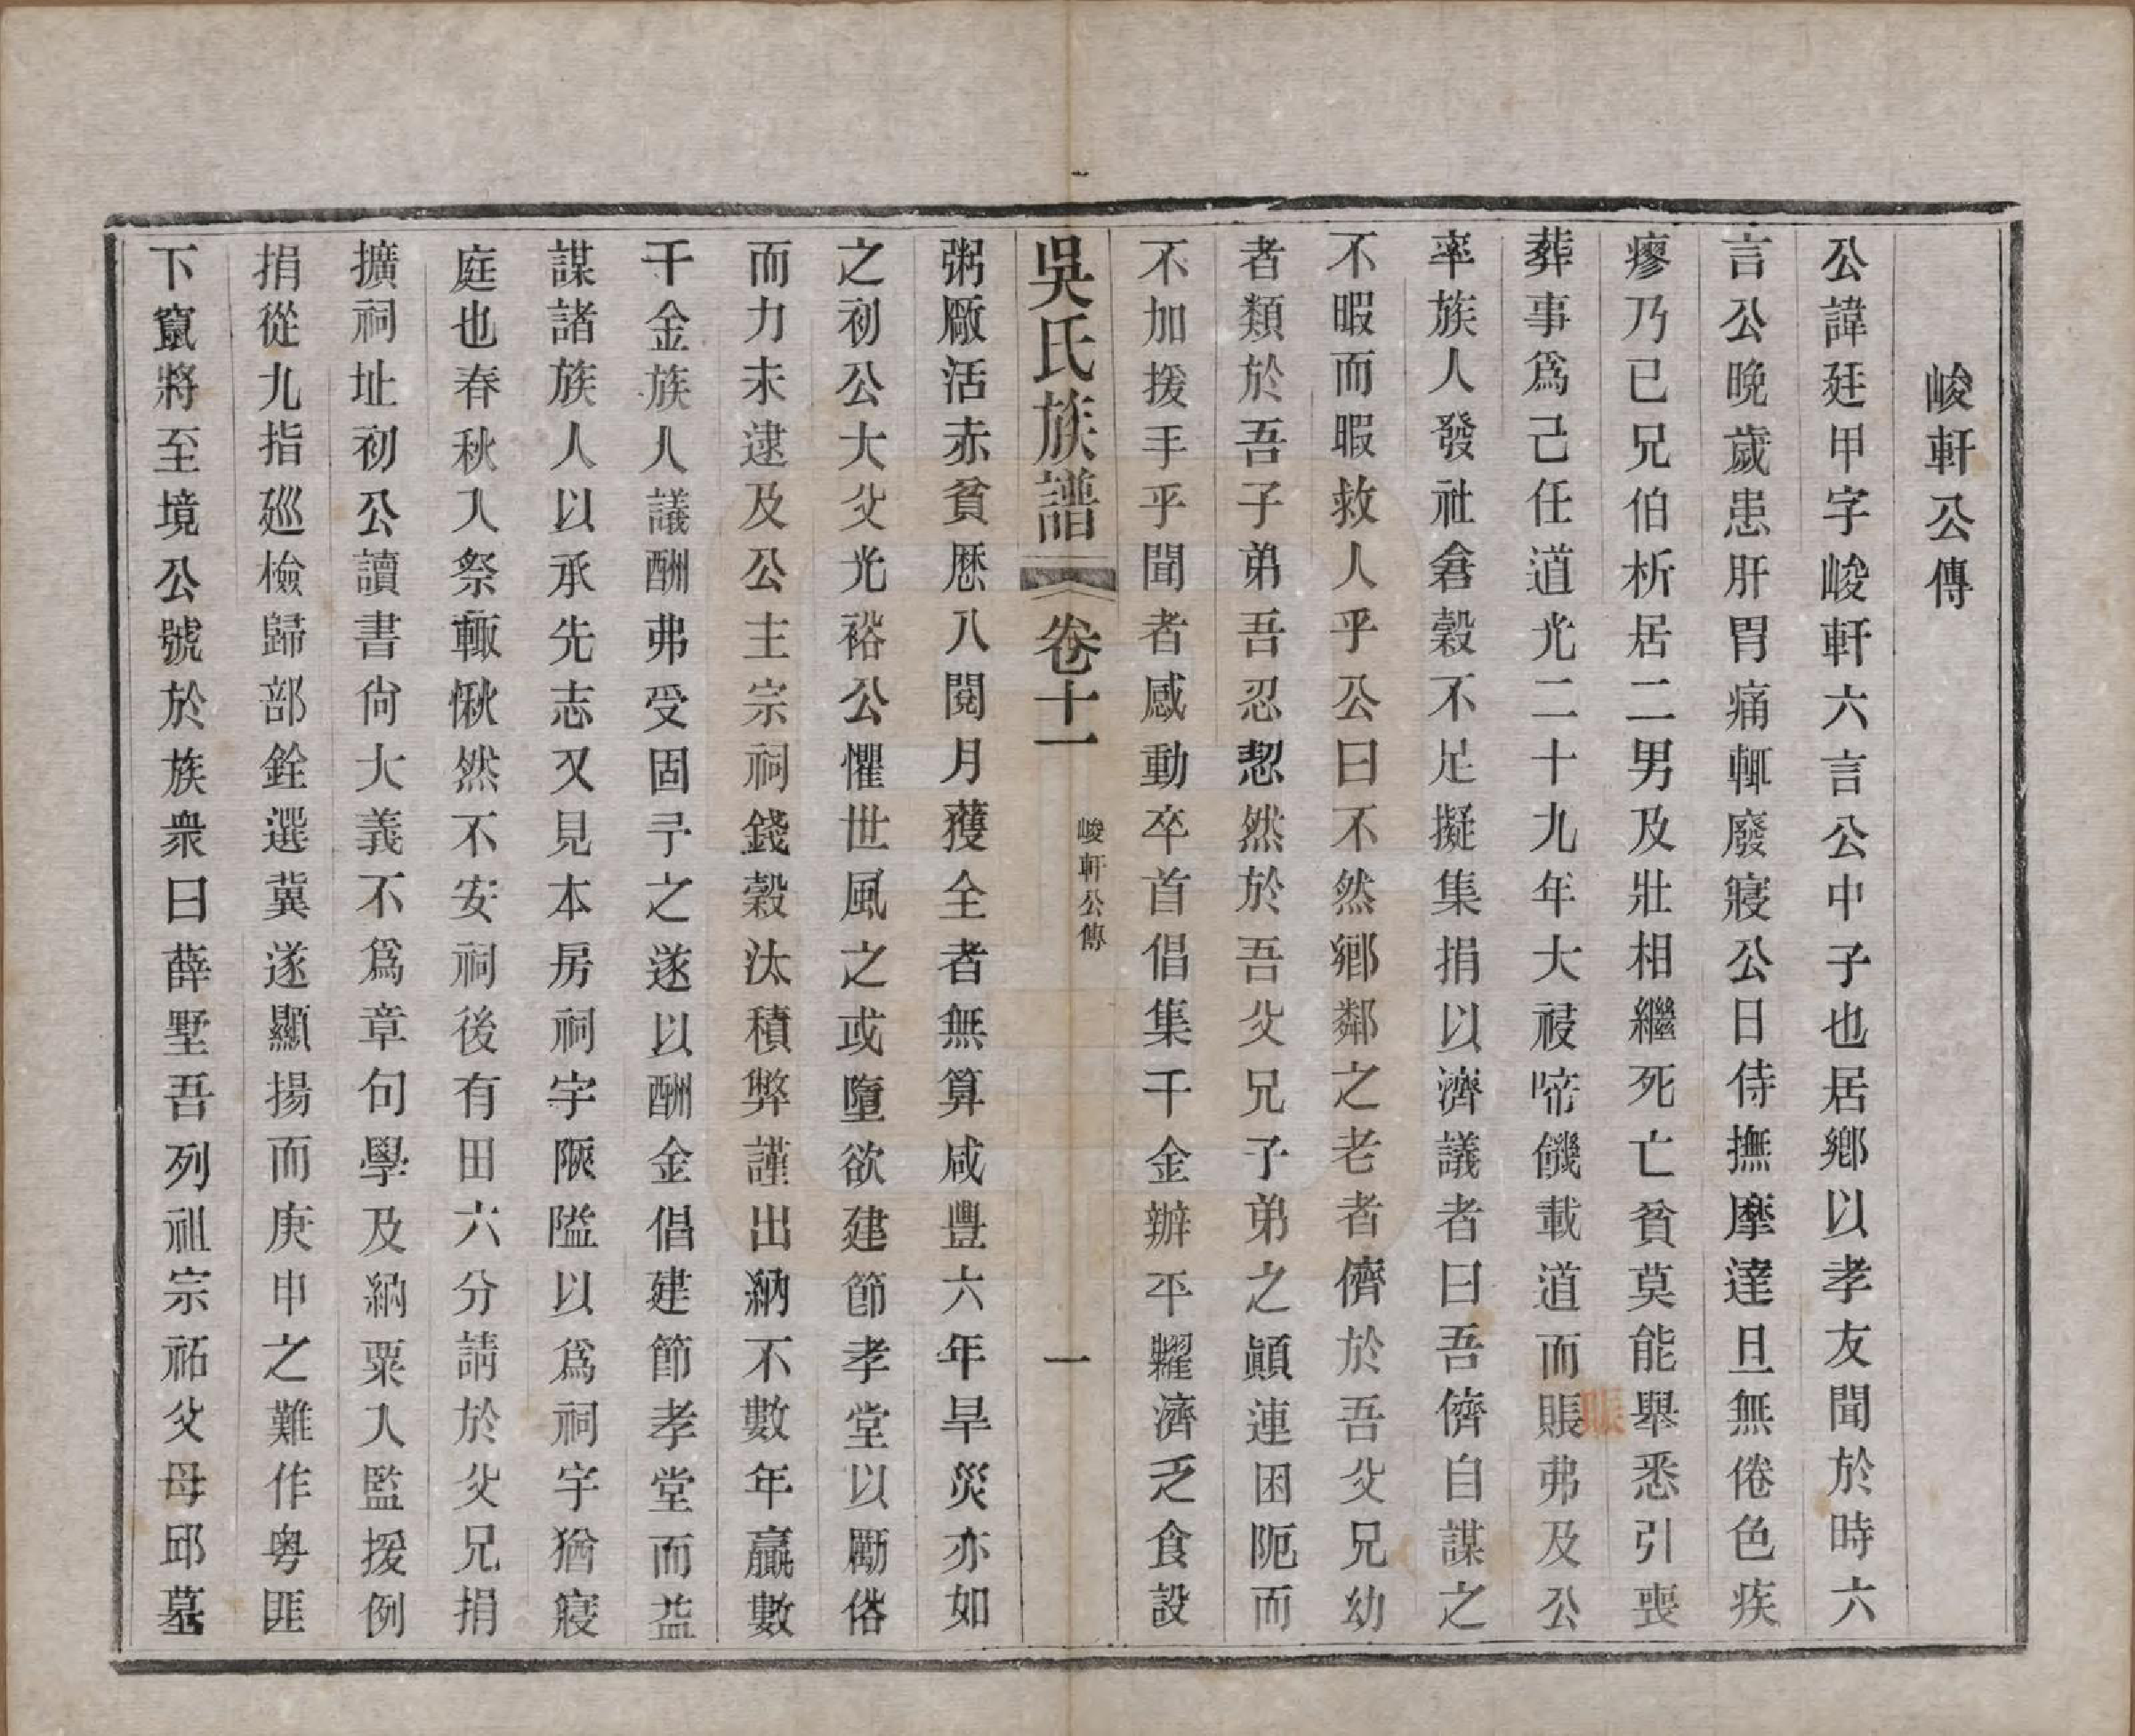 峻軒公傳
公諱廷甲字峻軒六言公中子也居鄉以孝友聞於時六
言公晚歲患肝胃痛輒廢寢公日侍撫摩達旦無倦色疾
瘳乃已兄伯析居二男及壯相繼死亡貧莫能舉悉引喪
葬事爲己任道光二十九年大祲啼饑載道而賑弗及公
賑
率族人發社倉穀不足擬集捐以濟議者曰吾儕自謀之
不暇而暇救人乎公曰不然鄉鄰之老者儕於吾父兄幼
者類於吾子弟吾忍恝然於吾父兄子弟之顚連困阨而
不加援手乎聞者感動卒首倡集千金辦平糶濟乏食設
吳氏族譜
卷十一
峻軒公傳
一
粥厰活赤貧厯八閱月獲全者無算咸豐六年旱災亦如
之初公大父光裕公懼世風之或墮欲建節孝堂以勵俗
而力未逮及公主宗祠錢穀汰積弊謹出納不數年贏數
千金族人議酬弗受固予之遂以酬金倡建節孝堂而益
謀諸族人以承先志又見本房祠宇陝隘以爲祠宇猶寢
庭也春秋入祭輙愀然不安祠後有田六分請於父兄捐
擴祠址初公讀書尙大義不爲章句學及納粟入監援例
捐從九指廵檢歸部銓選冀遂顯揚而庚申之難作粤匪
下竄將至境公號於族衆曰薛墅吾列祖宗祏父母邱墓